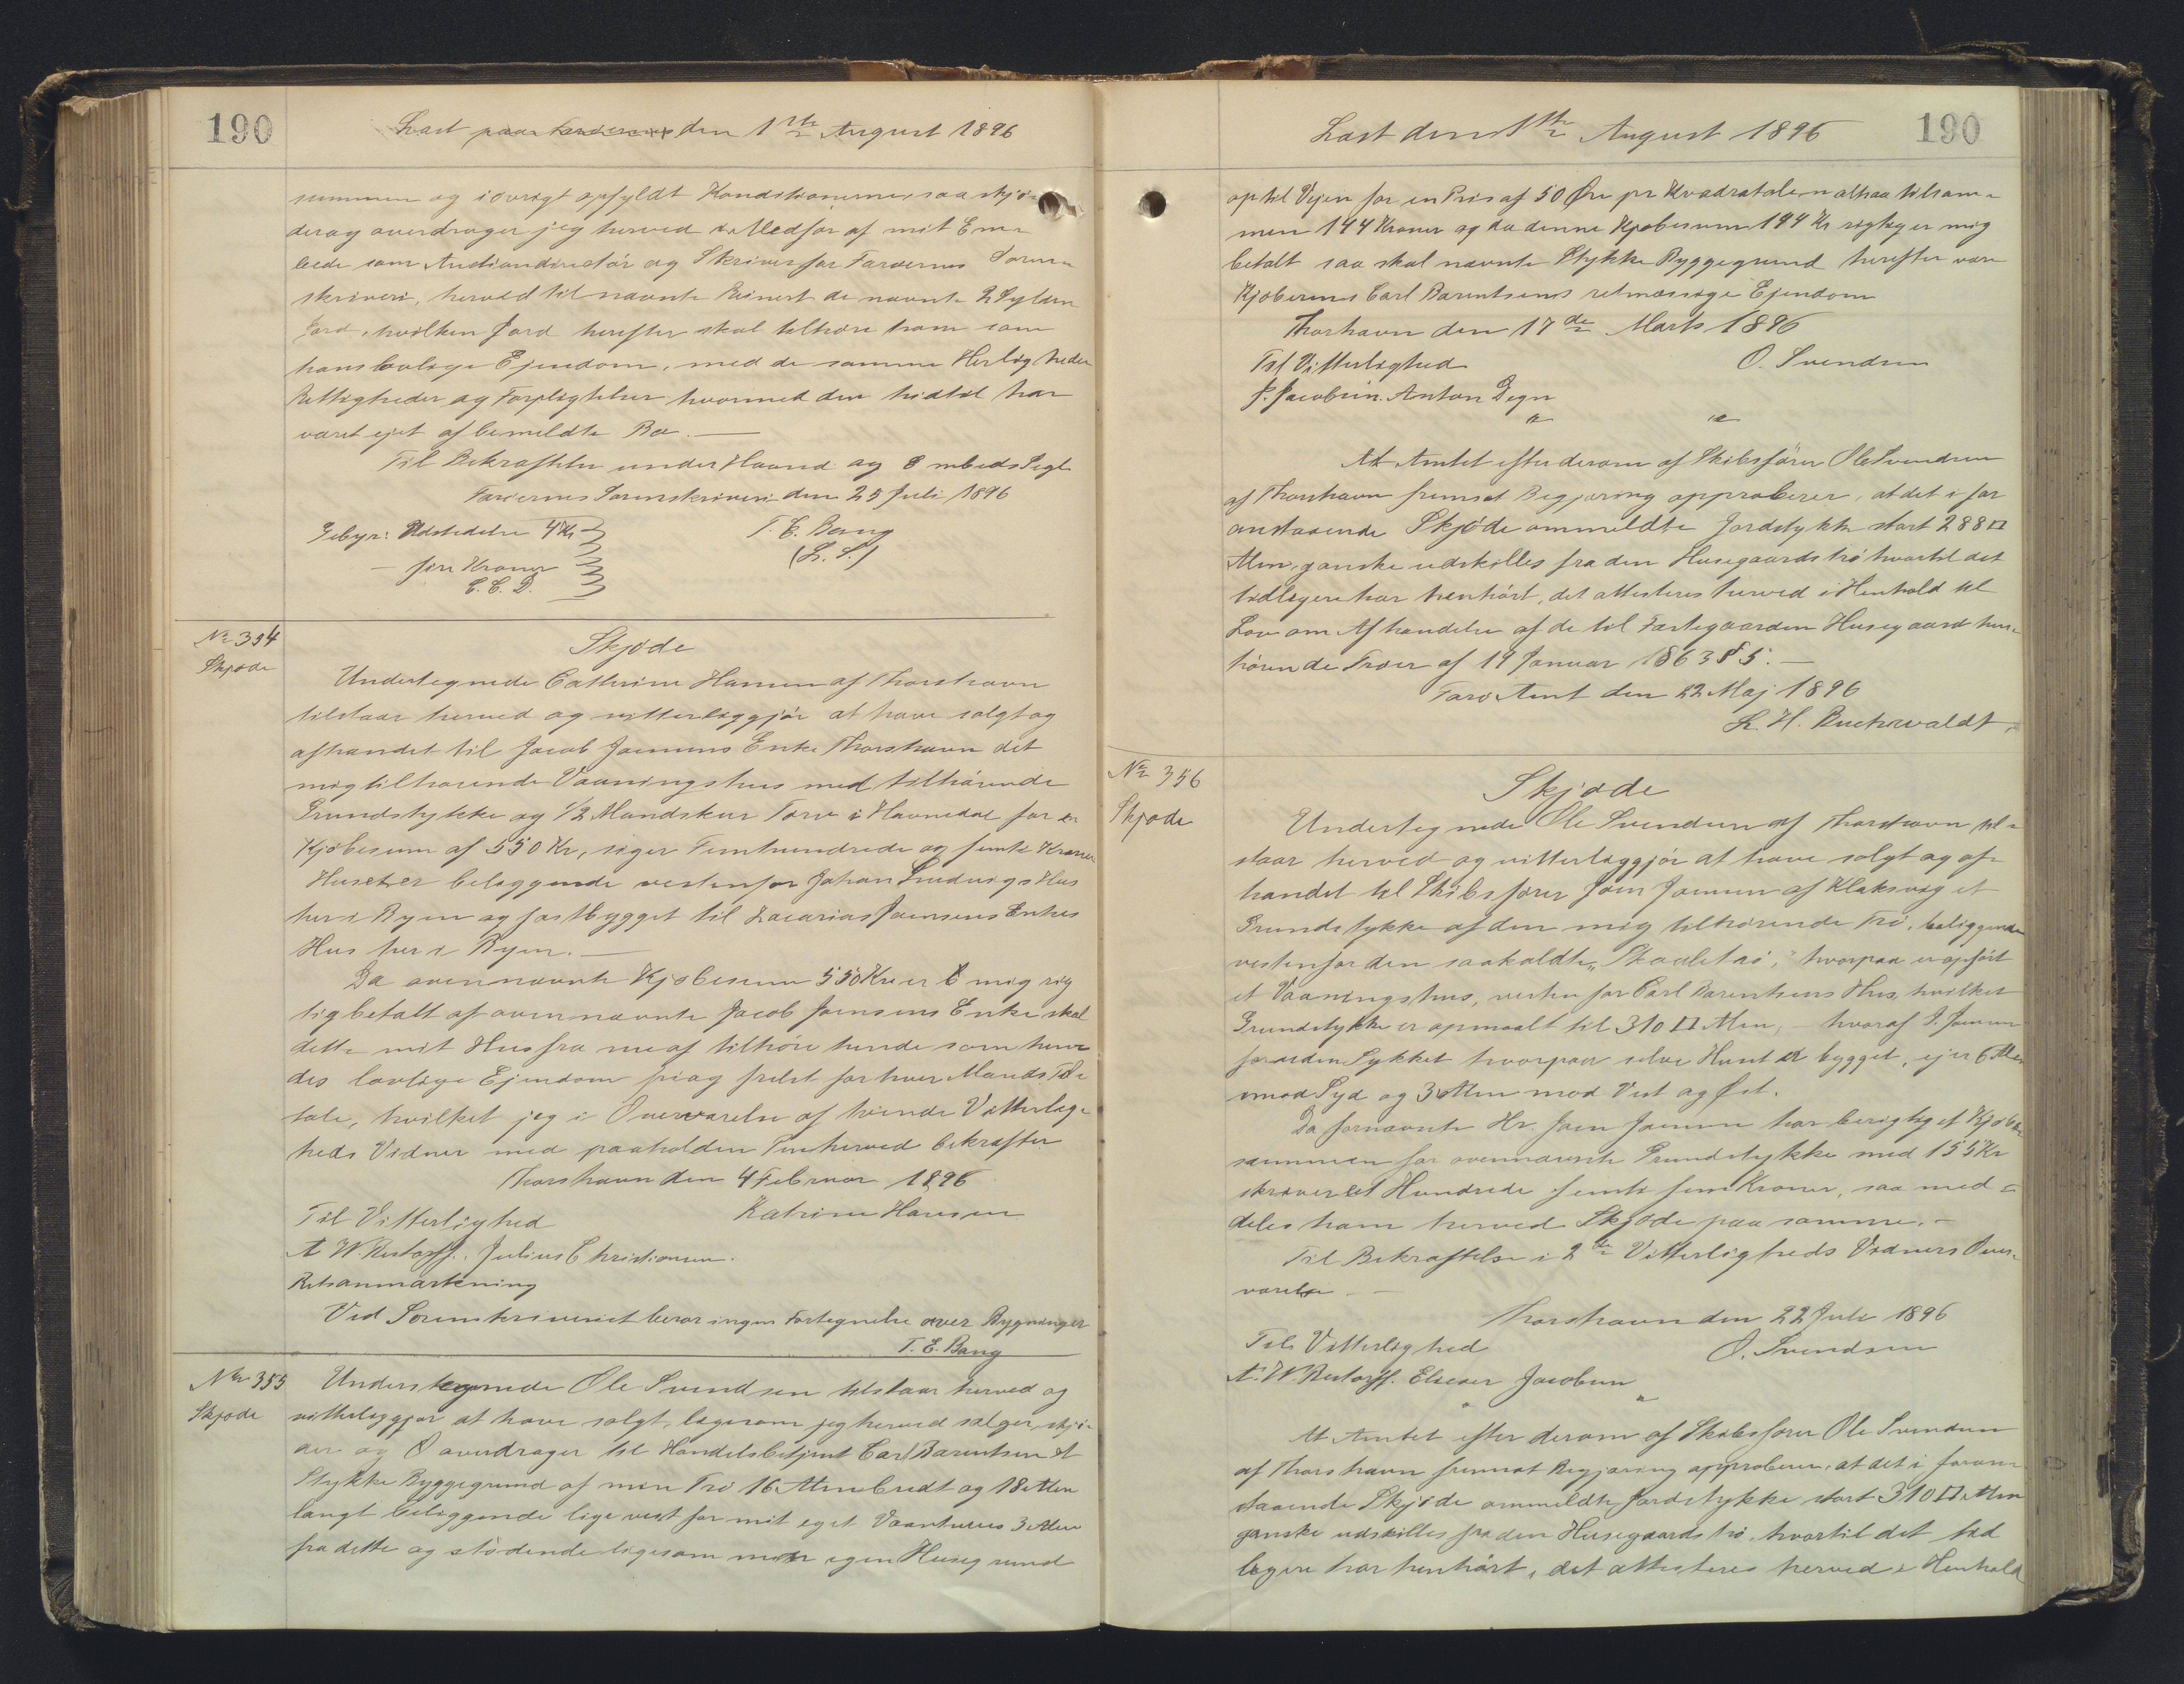 190
Læst paa den 1ste August 1896
summen og iøvrigt opfyldt Konditionerne, saa skjø-
der og overdrager jeg herved i Medfør af mit Em-
bede som Auctiondirectör og Skriver for Færøernes Soren-
skriveri, herved til nævnte Reinert de nævnte 2 Gylden
Jord, hvilken Jord herefter skal tilhöre ham som
hans lovlige Ejendom, med de samme Herligheder
Rettigheder og Forpligtelser hvormed den hidtil har
været ejet af bemeldte Bo. —
Til Bekræftelse under Haand og Embeds Segl
Færöernes Sorenskriveri den 25 Juli 1896
Gebyr: Udstedelse 4 Kr T. E. Bang
— fire Kroner (L. S.)
T. E. B.
No 354
Skjøde
Skjøde
Undertegnede Cathrine Hansen af Thorshavn
tilstaar herved og vitterliggjör at have solgt og
afhændet til Jacob Joensens Enke Thorshavn det
mig tilhørende Vaaningshus med tilhörende
Grundstykke og 1/2 Mandskur Törv i Havnedal for en
Kjöbesum af 550 Kr, siger Femhundrede og femti Kroner
Huset er beliggende vestenfor Johan Ludvigs Hus
her i Byen og fastbygget til Zacarias Joensens Enkes
Hus her i Byen. —
Da ovennævnte Kjöbesum 550 Kr er mig rig
tig betalt af ovennævnte Jacob Joensens Enke skal
dette mit Hus fra nu af tilhöre hende som hen-
des lovlige Ejendom fri og frelst for hver Mands Til-
tale, hvilket jeg i Overværelse af tvende Vitterlig-
heds Vidner med paaholden Pen herved bekræfter
Thorshavn den 4 Februar 1896
Til Vitterlighed Katrine Hansen
A W. Restorff. Julius Christiansen.
Retsanmærkning
Ved Sorenskriveriet beror ingen Fortegnelse over Bygninger
T. E. Bang
No 355
Skjøde
Undertegnede Ole Svendsen tilstaar herved og
vitterliggjør at have solgt, ligesom jeg herved sælger, skjö-
der og overdrager til Handelsbetjent Carl Barentsen et
Stykke Byggegrund af min Trö 16 Alen bredt og 18 Alen
langt beliggende lige vest for mit eget Vaanhus 3 Alen
fra dette og stödende ligesom min egen Husegrund
Læst den 1ste August 1896
190
op til Vejen for en Pris af 50 Øre pr Kvadratalen altsaa tilsam-
men 144 Kroner og da denne Kjøbesum 144 Kr rigtig er mig
betalt saa skal nævnte Stykke Byggegrund herefter være
Kjöberens Carl Barentsens retmæssige Ejendom
Thorhavn den 17de Marts 1896
Til Vitterlighed O. Svendsen
J. Jacobsen. Anton Degn
" "
At Amtet efter derom af Skibsförer Ole Svendsen
af Thorshavn fremsat Begjæring approberer, at det i for
anstaaende Skjöde ommeldte Jordstykke stort 288 □
Alen, ganske udskilles fra den Husegaards trö hvortil det
tidligere har henhört, det attesteres herved i Henhold til
Lov om Afhændelse af de til Fæstegaarden Husegaard hen-
hörende Tröer af 19 Januar 1863 § 5. —
Færø Amt den 22 Maj 1896
L. H. Buchwaldt,
No 356
Skjøde
Skjøde
Undertegnede Ole Svendsen af Thorshavn til-
staar herved og vitterliggjör at have solgt og af-
hændet til Skibsförer Joen Joensen af Klaksvig et
Grundstykke af den mig tilhörende Trö, beliggende
vestenfor den saakaldte „Skaaletrö," hvorpaa er opfört
et Vaaningshus, vesten for Carl Barentsens Hus, hvilket
Grundstykke er opmaalt til 310 □ Alen, — hvoraf J. Joensen
foruden Stykket hvorpaa selve Huset er bygget, ejer 6 Alen
mod Syd og 3 Alen mod Vest og Øst.
Da fornævnte Hr. Joen Joensen har berigtiget Kjöbe
summen for ovennævnte Grundstykke med 155 Kr
skriver et Hundrede femti fem Kroner, saa med-
deles ham herved Skjøde paa samme. —
Til Bekræftelse i 2de Vitterligheds Vidners Over-
værelse —
Thorshavn den 22 Juli 1896
Til Vitterlighed O. Svendsen
A. W. Restorff. Elieser Jacobsen
" "
At Amtet efter derom af Skibsförer Ole Svendsen
af Thorshavn fremsat Begjæring approberer, at det i foran-
staaende Skjöde ommeldte Jordstykke stort 310 □ Alen
ganske udskilles fra den Husegaards trö, hvortil det tid
ligere har henhört, det attesteres herved i Henhold